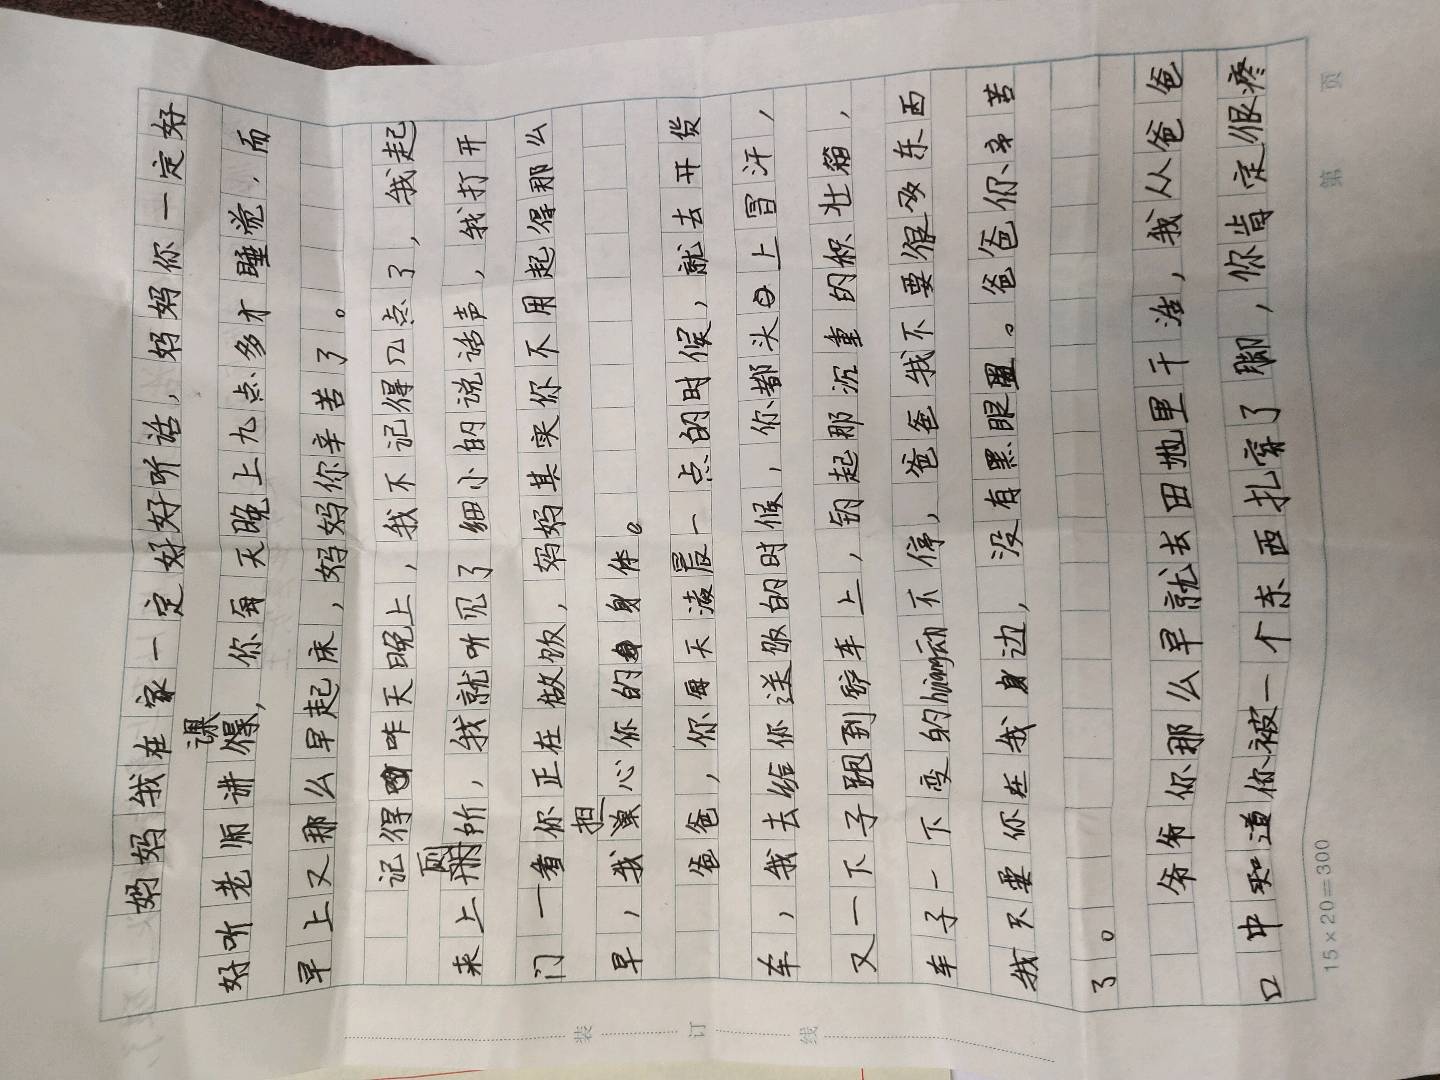 妈妈我在家一定好好听话，妈妈你一定好
课
好听老师讲得，你每天晚上九点多才睡觉，而
早上又那么早起床，妈妈你辛苦了。
记得昨天晚上，我不记得几点了，我起
厕
来上所，我就听见了细小的说话声，我打开
门一看你正在做饭，妈妈其实你不用起得那么
担
早，我心你的身体。
爸爸，你每天凌晨一点的时候，就去开货
车，我去给你送饭的时候，你都头上冒汗，
又一下子跑到车上，钥起那沉重的积壮箱，
车子一下变的huang动不停，爸爸我不要很多东西
我只要你在我身边，没有黑眼圈。爸爸你辛苦
了。
爷爷你那么早就去田地里干活，我从爸爸
口中知道你被一个东西扎穿了脚，你肯定很疼
装 订 线
15×20=300
第 页